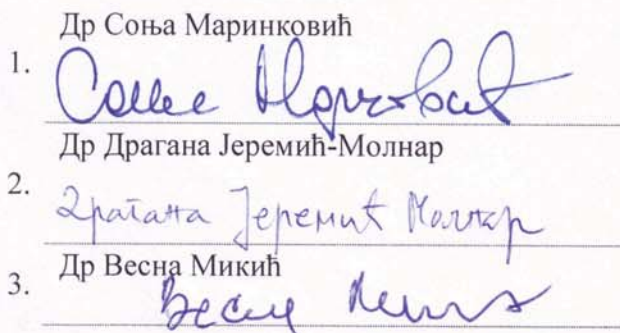 Др Соња Маринковић
1.
Соња Маринковић
Др Драгана Јеремић-Молнар
2.
Драгана Јеремић Молнар
Др Весна Микић
3.
Весна Микић